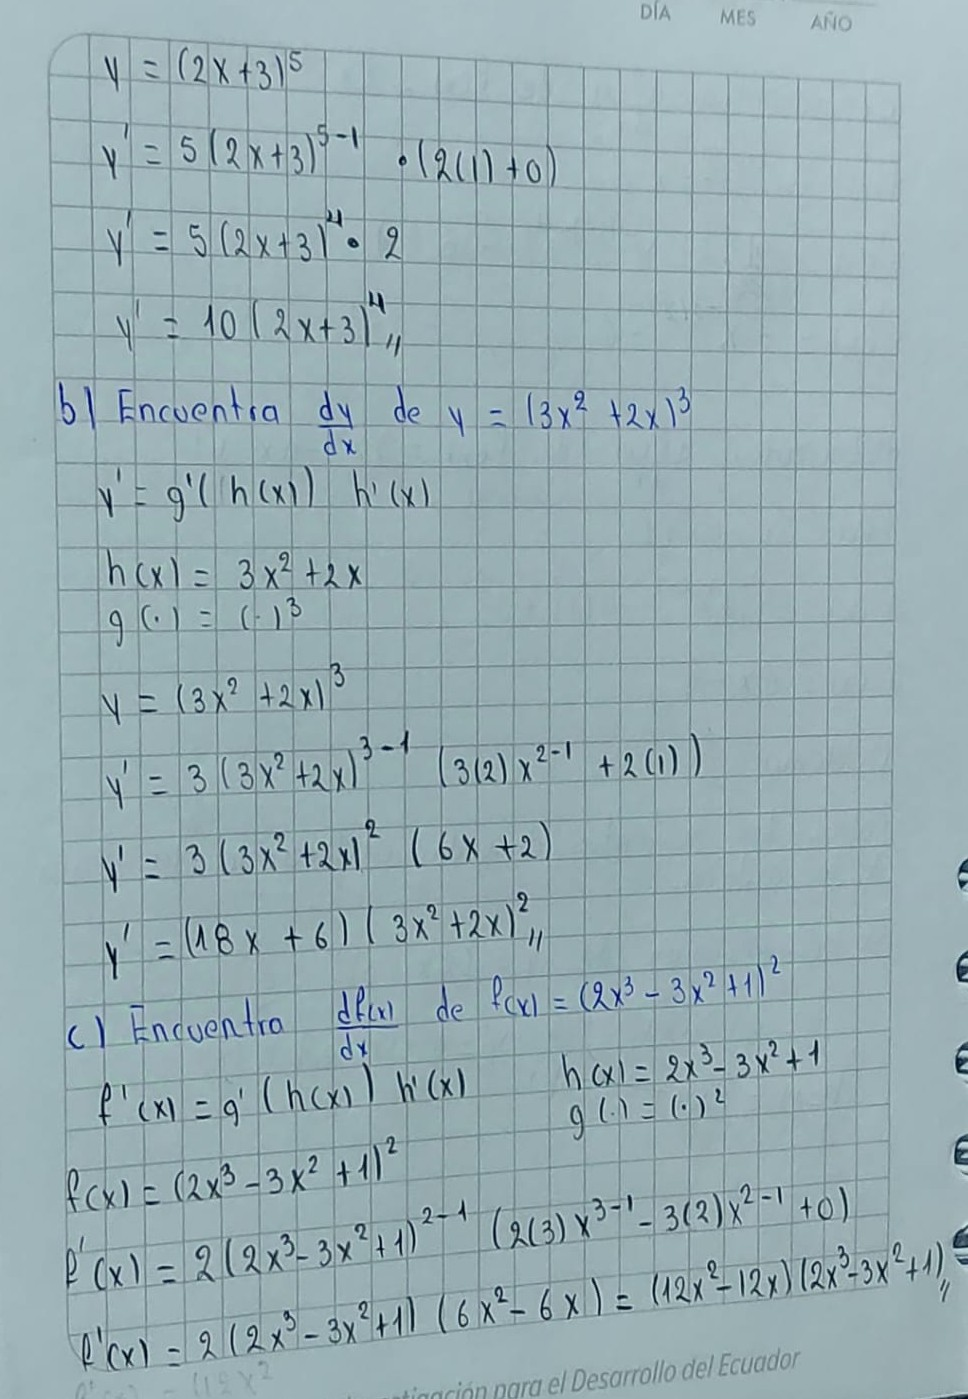 DÍA MES AÑO
y = (2x+3)^5
y' = 5(2x+3)^5-1 • (2(1)+0)
y' = 5(2x+3)^4 • 2
y' = 10(2x+3)^4 //
b) Encuentra dy/dx de y = (3x² +2x)³
y' = g'(h(x)) h'(x)
h(x) = 3x² +2x
g(·) = (·)³
y = (3x² +2x)³
y' = 3(3x²+2x)^3-1 (3(2)x^2-1 +2(1))
y' = 3(3x²+2x)² (6x+2)
y' = (18x + 6)(3x²+2x)² //
c) Encuentra df(x)/dx de f(x) = (2x³ - 3x² +1)²
f'(x) = g'(h(x)) h'(x) h(x) = 2x³ - 3x² + 1
g(·) = (·)²
f(x) = (2x³ - 3x² +1)²
f'(x) = 2(2x³ - 3x² +1)^2-1 (2(3)x^3-1 - 3(2)x^2-1 +0)
f'(x) = 2(2x³ - 3x²+1) (6x² - 6x) = (12x² - 12x)(2x³-3x²+1) //
para el Desarrollo del Ecuador